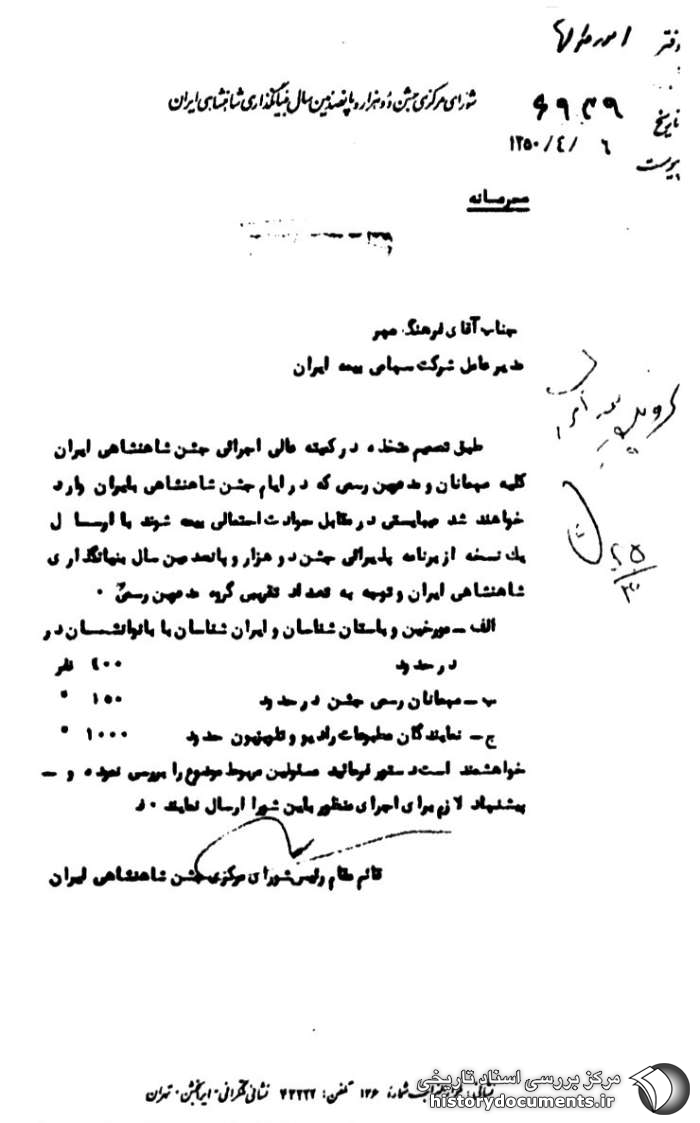 دفتر امور مالی
شورای مرکزی جشن دوهزار و پانصدمین سال بنیانگذاری شاهنشاهی ایران
۶۹۳۹
تاریخ ۱۳۵۰/۴/۶
پیوست
محرمانه
جناب آقای فرهنگ مهر
مدیر عامل شرکت سهامی بیمه ایران
طبق تصمیم متخذه در کمیته عالی اجرائی جشن شاهنشاهی ایران
کلیه میهمانان و مدعوین رسمی که در ایام جشن شاهنشاهی بایران وارد
خواهند شد میبایستی در مقابل حوادث احتمالی بیمه شوند با ارسال
یک نسخه از برنامه پذیرائی جشن دو هزار و پانصدمین سال بنیانگذاری
شاهنشاهی ایران و توجه به تعداد تقریبی گروه مدعوین رسمی ۰
الف - مورخین و باستان شناسان و ایران شناسان با بانوانشان در
در حدود ۴۰۰ نفر
ب - میهمانان رسمی جشن در حدود ۱۵۰ "
ج - نمایندگان مطبوعات رادیو و تلویزیون حدود ۱۰۰۰ "
خواهشمند است دستور فرمائید مسئولین مربوط موضوع را بررسی نموده و -
پیشنهاد لازم برای اجرای منظور باین شورا ارسال نمایند ۰
قائم مقام رئیس شورای مرکزی جشن شاهنشاهی ایران
۲۵
شماره ۱۲۶ تلفن: ۴۲۲۲۲ نشانی تلگرافی - ایرانجشن - تهران
مرکز بررسی اسناد تاریخی
historydocuments.ir